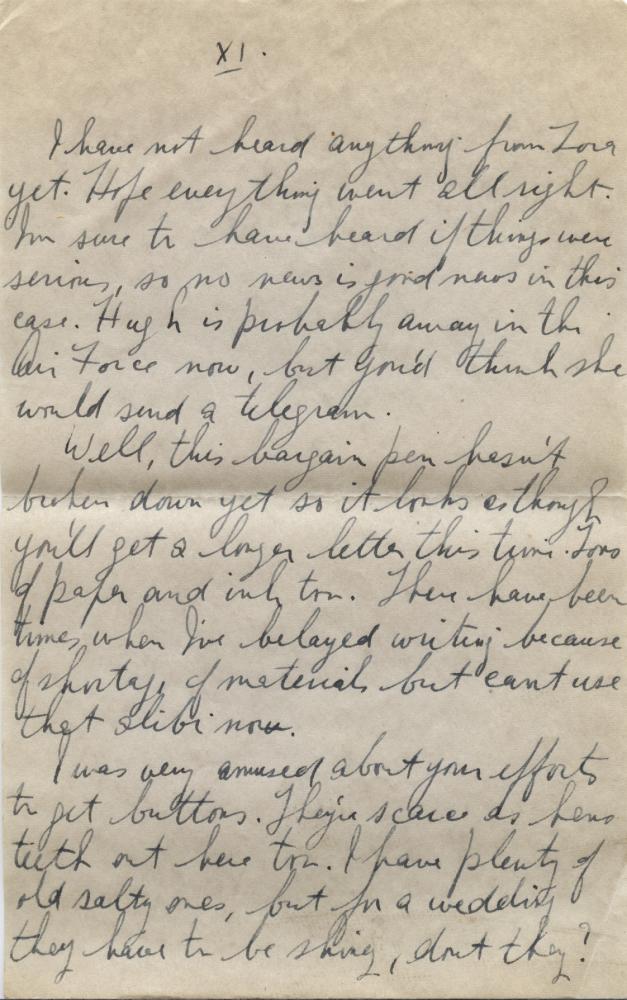 XI.
I have not heard anything from Zora
yet. Hope everything went all right.
I'm sure to have heard if things were
serious, so no news is good news in this
case. Hugh is probably away in the
Air Force now, but you'd think she
would send a telegram.
Well, this bargain pen hasn't
broken down yet so it looks as though
you'll get a longer letter this time. Tons
of paper and ink too. There have been
times when I've belayed writing because
of shortage of materials but cant use
that alibi now.
I was very amused about your efforts
to get buttons. They're scarce as hens
teeth out here too. I have plenty of
old salty ones, but for a wedding
they have to be shiny, dont they?